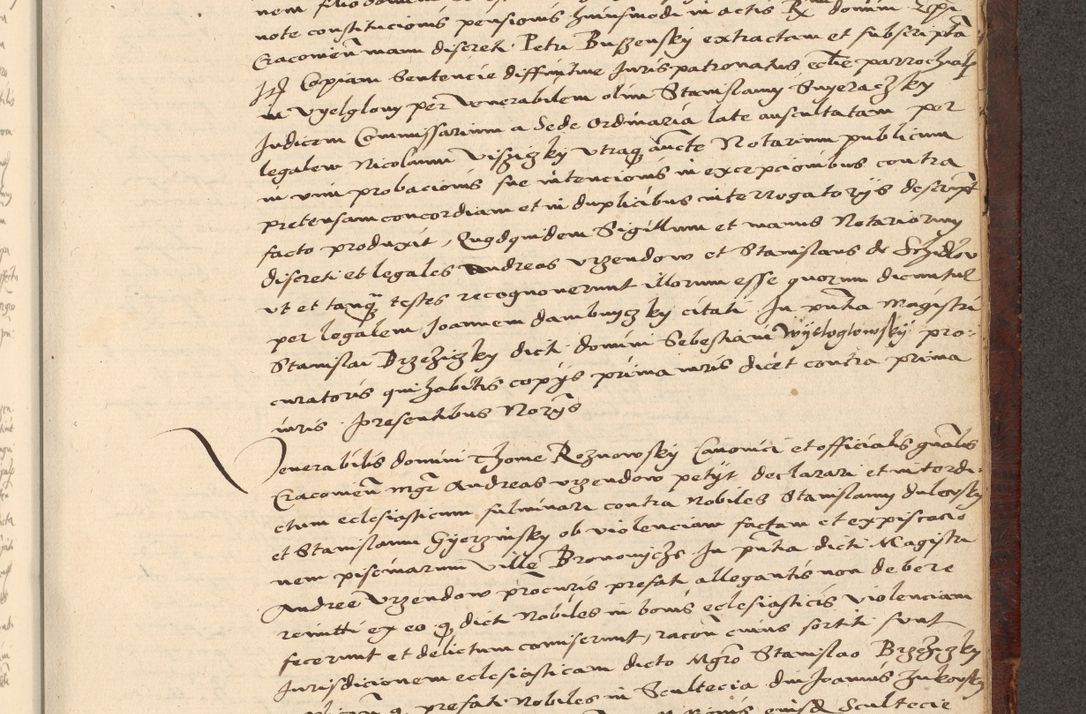 note constitucionis pensionis huiusmodi in actis R. domini Epi
Cracovien̄ manu discreti Petri Buszensky extractam et subscriptā
Itē Copiam Sentencie diffinitive Jurispatronatus ecclie parrochialis
in Vyelglowy per Venerabilem olim Stanislaum Snyeraczky
Judicem Commissarium a Sede Ordinaria late auscultatam per
legalem Nicolaum Vyszyczky utraqȝ Notarium publicum
in vim probacionis sue intencionis in excepcionibus contra
pretensam concordiam et in duplicibus interrogatorijs descript
facto produxit, Quequidem Sigillum et manus Notariorum
discreti et legales Andreas Urzendow et Stanislaus de Schidlow
ut et tanqȝ testes recognoverunt illorum esse quorum dicuntur
per legalem Joannem Dambnyczky citati In pn̄tia Magistri
Stanislai Brzezyczky dicti domini Sebestiani Wytoglowsky pro-
curatoris qui habitis copijs prima iuris dicet contra prima
iuris presentibus Norijs
Venerabilis domini Thome Roznowsky Canonici et officialis gn̄alis
Cracovien̄ Mgr̄ Andreas Urzendow petijt declarari et interdi-
ctum eclesiasticum fulminari contra Nobiles Stanislaum Dulowsky
et Stanislaum Gyerzinsky ob violenciam factam et expiscacio
nem piscinarum ville Bronowycze In pn̄tia dicti Magistri
Andree Urzendow procuris prefati allegantis non debere
remitti ex eo qȝ dicti Nobiles in bonis eclesiasticis violenciam
fecerunt et delictum comiserunt, racōn cuius sortiti sunt
Jurisdicionem eclesiasticam dicto Mgrō Stanislao Brzezyczky
prefati Nobiles in Scultecia dni Joannis Zukowsky
Scultecie